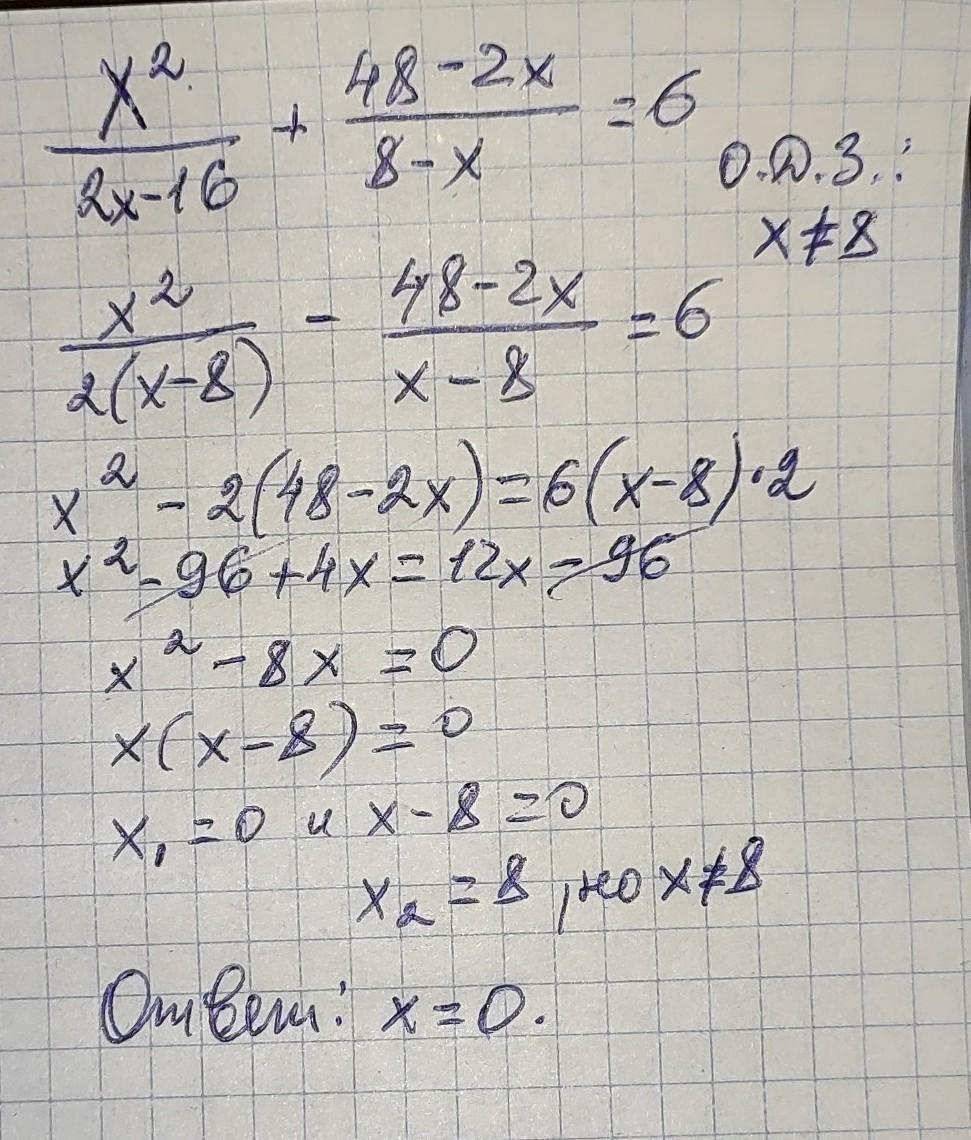 x²/(2x-16) + (48-2x)/(8-x) = 6
О.Д.З.:
x≠8
x²/(2(x-8)) - (48-2x)/(x-8) = 6
x² - 2(48-2x) = 6(x-8)·2
x² - 96 + 4x = 12x - 96
x² - 8x = 0
x(x-8) = 0
x₁ = 0 и x-8 = 0
x₂ = 8, но x≠8
Ответ: x = 0.